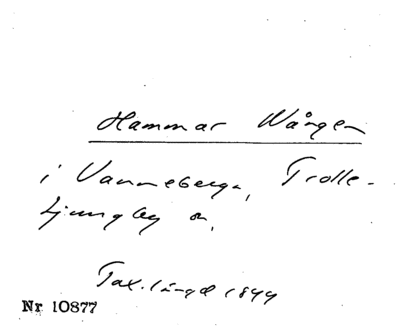 Hammar Wången
i Vanneberga, Trolle-
ljungby sn,
Tax.längd 1844
Nr 10877